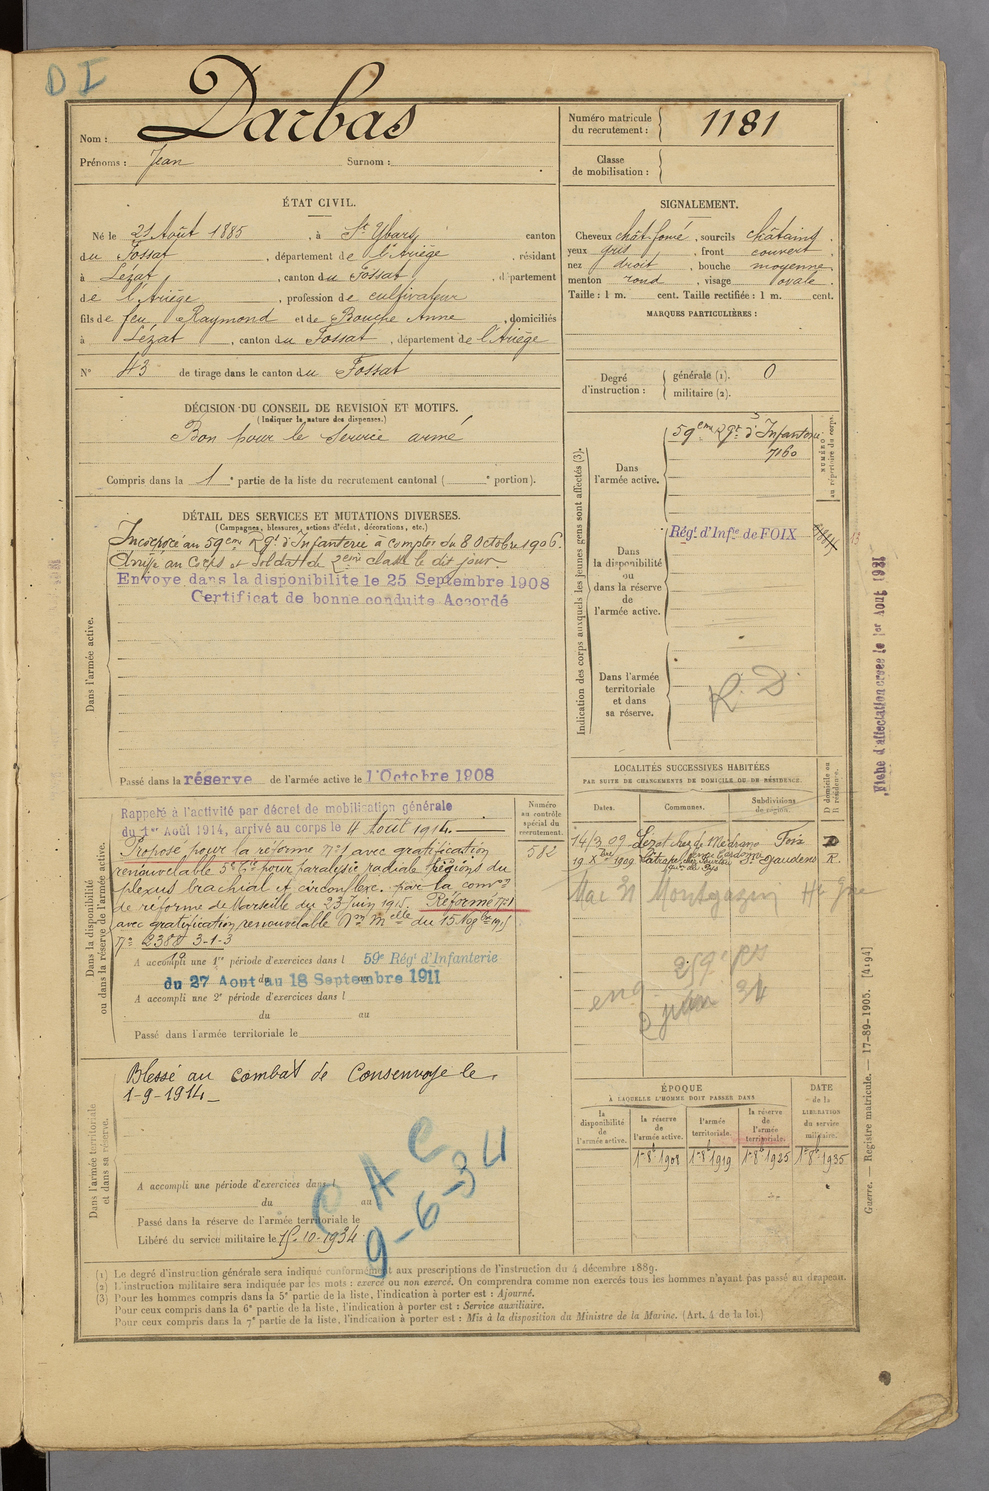 D I
Nom : Darbas
Prénoms : Jean Surnom :
Numéro matricule du recrutement : 1181
Classe de mobilisation :
ÉTAT CIVIL.
Né le 21 Août 1885, à St Ybars, canton
du Fossat, département de l'Ariège, résidant
à Lézat, canton du Fossat, département
de l'Ariège, profession de cultivateur
fils de feu Raymond et de Bouche Anne, domiciliés
à Lézat, canton du Fossat, département de l'Ariège
N° 43 de tirage dans le canton du Fossat
SIGNALEMENT.
Cheveux chât. foncé, sourcils châtains,
yeux gris, front couvert,
nez droit, bouche moyenne,
menton rond, visage ovale.
Taille : 1 m. cent. Taille rectifiée : 1 m. cent.
MARQUES PARTICULIÈRES :
Degré d'instruction : générale (1). 0
militaire (2).
DÉCISION DU CONSEIL DE REVISION ET MOTIFS.
(Indiquer la nature des dispenses.)
Bon pour le service armé
Compris dans la 1e partie de la liste du recrutement cantonal ( e portion).
DÉTAIL DES SERVICES ET MUTATIONS DIVERSES.
(Campagnes, blessures, actions d'éclat, décorations, etc.)
Dans l'armée active.
Incorporé au 59eme Rgt d'Infanterie à compter du 8 Octobre 1906.
Arrivé au Corps et Soldat de 2eme classe le dit jour.
Envoyé dans la disponibilite le 25 Septembre 1908
Certificat de bonne conduite Accordé
Passé dans la réserve de l'armée active le 1'Octobre 1908
Indication des corps auxquels les jeunes gens sont affectés (3).
Dans l'armée active.
59eme Rgt d'Infanterie
7160
NUMÉRO au répertoire du corps.
Dans la disponibilité ou dans la réserve de l'armée active.
Régt d'Infie de FOIX
Dans l'armée territoriale et dans sa réserve.
R. D.
Fiche d'affectation créée le 1er Aout 1931
Dans la disponibilité ou dans la réserve de l'armée active.
Rappelé à l'activité par décret de mobilisation générale
du 1er Août 1914, arrivé au corps le 4 Août 1914.
Proposé pour la réforme n°1 avec gratification
renouvelable 5e Cie pour paralysie radiale régions du
plexus brachial et circonflexe. par la comon
de réforme de Marseille du 23 Juin 1915. Réformé n°1
avec gratification renouvelable Don Melle du 15 Nov bre 1915
n° 2388 3-1-3
A accompli une 1re période d'exercices dans l 59e Régt d'Infanterie
du 27 Aout au 18 Septembre 1911
A accompli une 2e période d'exercices dans l
du au
Passé dans l'armée territoriale le
Numéro au contrôle spécial du recrutement.
582
LOCALITÉS SUCCESSIVES HABITÉES
PAR SUITE DE CHANGEMENTS DE DOMICILE OU DE RÉSIDENCE.
Dates. Communes. Subdivisions de région. D domicile ou R résidence.
14/3 09 Lézat chez de Médrano Foix D
19 Xbre 1909 St Gaudens R.
Mai 31 Montgazin Hte Gne
259e
2 juin 31
Dans l'armée territoriale et dans sa réserve.
Blessé au combat de Consenvoye le
1-9-1914
C A C
9-6-34
A accompli une période d'exercices dans l
du au
Passé dans la réserve de l'armée territoriale le
Libéré du service militaire le 15-10-1934
ÉPOQUE
À LAQUELLE L'HOMME DOIT PASSER DANS
la disponibilité de l'armée active.
la réserve de l'armée active. 1er 8bre 1908
l'armée territoriale. 1er 8bre 1919
la réserve de l'armée territoriale. 1er 8bre 1925
DATE de la LIBÉRATION du service militaire. 1er 8bre 1935
Guerre. — Registre matricule. — 17-89-1905. [4194]
(1) Le degré d'instruction générale sera indiqué conformément aux prescriptions de l'instruction du 4 décembre 1889.
(2) L'instruction militaire sera indiquée par les mots : exercé ou non exercé. On comprendra comme non exercés tous les hommes n'ayant pas passé au drapeau.
(3) Pour les hommes compris dans la 5e partie de la liste, l'indication à porter est : Ajourné.
Pour ceux compris dans la 6e partie de la liste, l'indication à porter est : Service auxiliaire.
Pour ceux compris dans la 7e partie de la liste, l'indication à porter est : Mis à la disposition du Ministre de la Marine. (Art. 4 de la loi.)